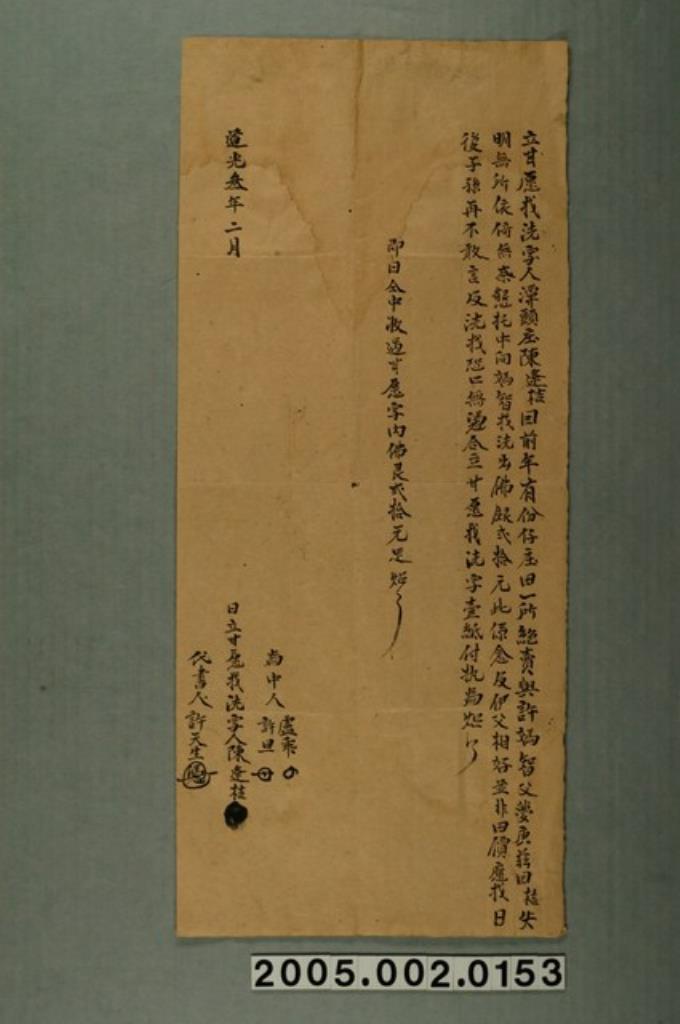 立甘愿找洗字人潭頭庄陳逢桂因前年有份仔庄田一所絕賣與許媽智父變庚茲因桂失
明無所依倚無奈懇托中向媽智找洗出佛銀弍拾元此係念及伊父相好並非田價應找日
後子孫再不敢言及洗找恐口無憑仝立甘愿找洗字壹紙付執為炤
即日仝中收過甘愿字內佛艮弍拾元足炤
為中人 盧乖
許旦
道光叁年二月
日立甘愿找洗字人陳逢桂
代書人許天生
2005.002.0153